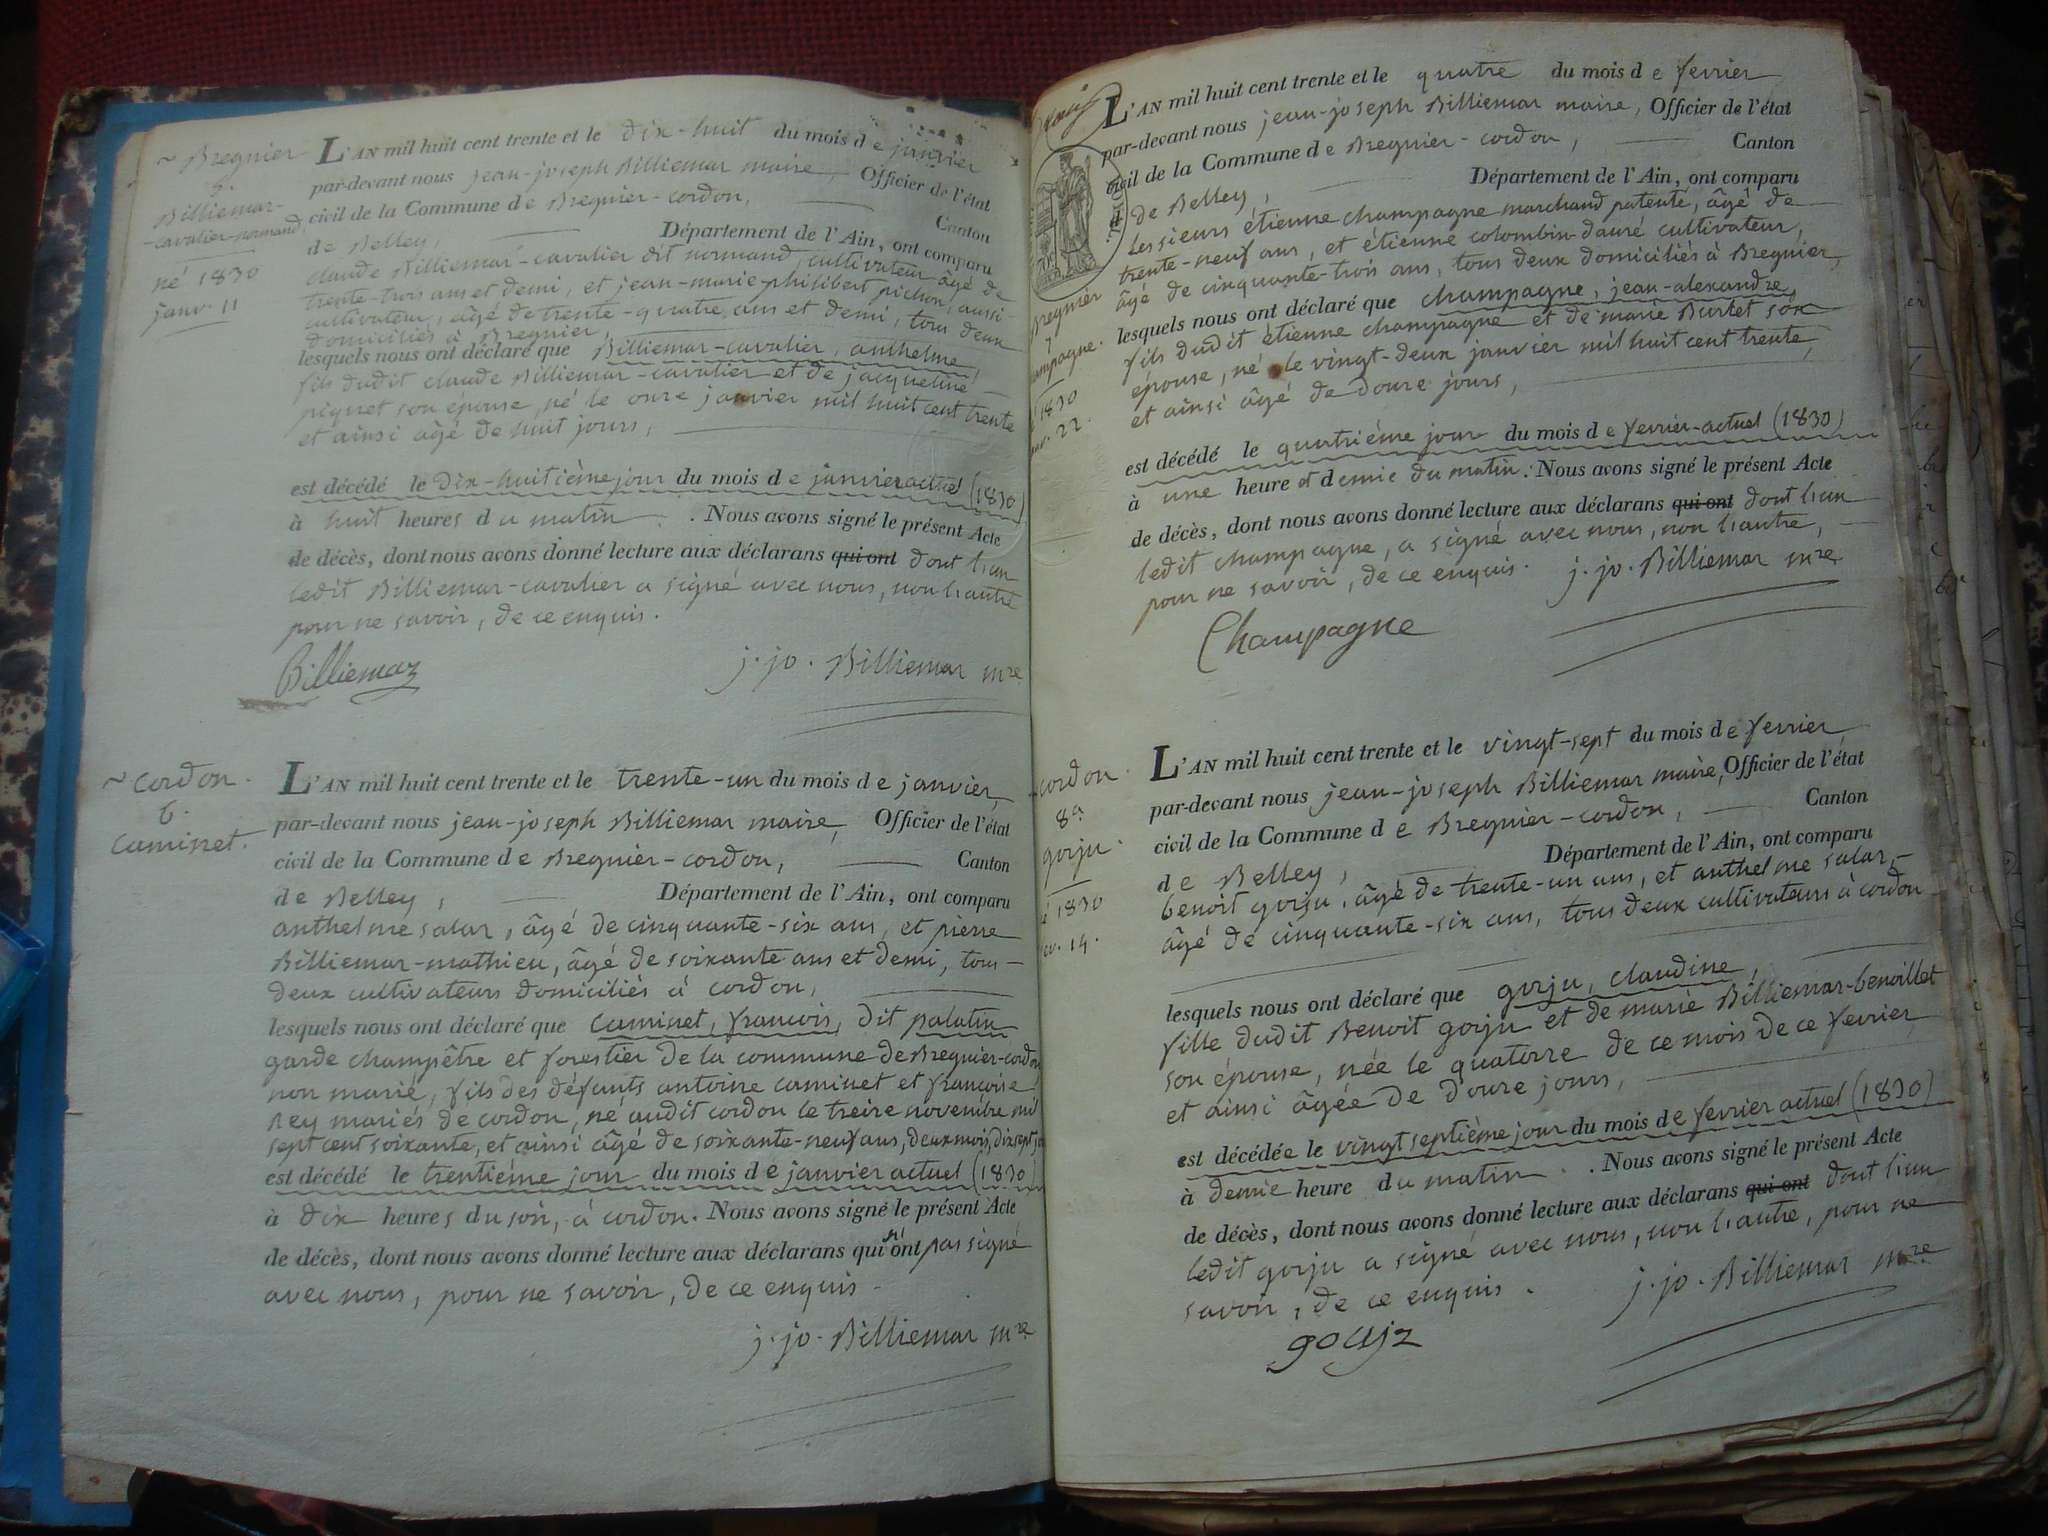 ~ Bregnier
5.
Billiemaz-
-cavalier-normand,
né 1830
janv. 11
L'AN mil huit cent trente et le dix-huit du mois de janvier
par-devant nous jean-joseph Billiemaz maire, Officier de l'état
civil de la Commune de Bregnier-cordon, Canton
de Belley, Département de l'Ain, ont comparu
claude Billiemaz-cavalier dit normand, cultivateur âgé de
trente-trois ans et demi, et jean-marie-philibert pichon, aussi
cultivateur, âgé de trente-quatre ans et demi, tous deux
domiciliés à Bregnier,
lesquels nous ont déclaré que Billiemaz-cavalier, anthelme,
fils dudit claude Billiemaz-cavalier et de jacqueline
piquet son épouse, né le onze janvier mil huit cent trente
et ainsi âgé de huit jours,
est décédé le dix-huitième jour du mois de janvier actuel (1830)
à huit heures du matin. Nous avons signé le présent Acte
de décès, dont nous avons donné lecture aux déclarans qui ont dont l'un
ledit Billiemaz-cavalier a signé avec nous, non l'autre
pour ne savoir, de ce enquis.
Billiemaz j. jo. Billiemaz mre
~ cordon.
6.
caminet.
L'AN mil huit cent trente et le trente-un du mois de janvier,
par-devant nous jean-joseph Billiemaz maire, Officier de l'état
civil de la Commune de Bregnier-cordon, Canton
de Belley, Département de l'Ain, ont comparu
anthelme salaz, âgé de cinquante-six ans, et pierre
Billiemaz-mathieu, âgé de soixante ans et demi, tous
deux cultivateurs domiciliés à cordon,
lesquels nous ont déclaré que caminet, françois, dit palatin
garde champêtre et forestier de la commune de Bregnier-cordon
non marié, fils des défunts antoine caminet et françoise
Rey mariés de cordon, né audit cordon le treize novembre mil
sept cent soixante, et ainsi âgé de soixante-neuf ans, deux mois, dix sept
est décédé le trentième jour du mois de janvier actuel (1830)
à dix heures du soir, à cordon. Nous avons signé le présent Acte
de décès, dont nous avons donné lecture aux déclarans qui n'ont pas signé
avec nous, pour ne savoir, de ce enquis.
j. jo. Billiemaz mre
Bregnier
7
ampagne.
1830
22.
L'AN mil huit cent trente et le quatre du mois de fevrier
par-devant nous jean-joseph Billiemaz maire, Officier de l'état
civil de la Commune de Bregnier-cordon, Canton
de Belley, Département de l'Ain, ont comparu
Les sieurs étienne champagne marchand patenté, âgé de
trente-neuf ans, et étienne colombin-dauré cultivateur,
âgé de cinquante-trois ans, tous deux domiciliés à Bregnier,
lesquels nous ont déclaré que champagne, jean-alexandre,
fils dudit étienne champagne et de marie Burtet son
épouse, né le vingt-deux janvier mil huit cent trente,
et ainsi âgé de douze jours,
est décédé le quatrième jour du mois de fevrier-actuel (1830)
à une heure et demie du matin. Nous avons signé le présent Acte
de décès, dont nous avons donné lecture aux déclarans qui ont dont l'un
ledit champagne, a signé avec nous, non l'autre,
pour ne savoir, de ce enquis. j. jo. Billiemaz mre
Champagne
cordon.
8e
gorju.
1830
14.
L'AN mil huit cent trente et le vingt-sept du mois de fevrier,
par-devant nous jean-joseph Billiemaz maire, Officier de l'état
civil de la Commune de Bregnier-cordon, Canton
de Belley, Département de l'Ain, ont comparu
benoit gorju, âgé de trente-un ans, et anthelme salaz,
âgé de cinquante-six ans, tous deux cultivateurs à cordon
lesquels nous ont déclaré que gorju, claudine,
fille dudit Benoit gorju et de marie Billiemaz-benoillet
son épouse, née le quatorze de ce mois de ce fevrier
et ainsi âgée de douze jours,
est décédée le vingt septième jour du mois de fevrier actuel (1830)
à demie heure du matin. Nous avons signé le présent Acte
de décès, dont nous avons donné lecture aux déclarans qui ont dont l'un
ledit gorju a signé avec nous, non l'autre, pour ne
savoir, de ce enquis. j. jo. Billiemaz mre